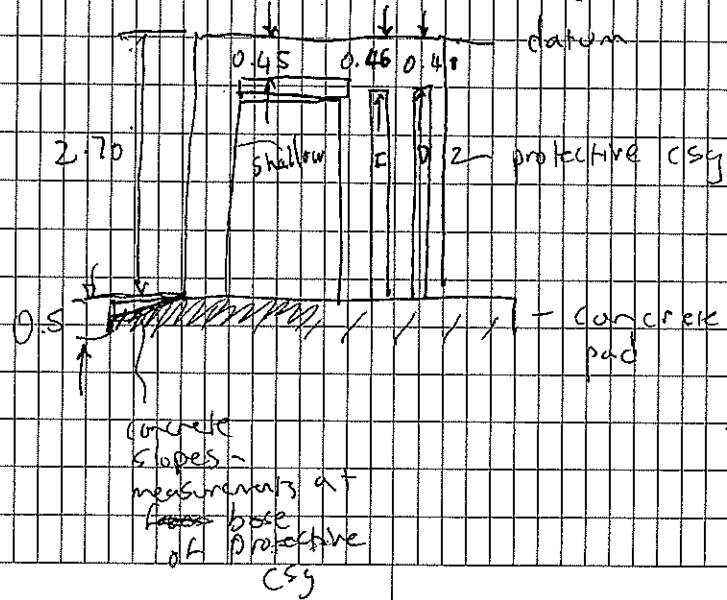 datum
0.45 0.46 0.41
2.70
Shallow I D protective csg
0.5
concrete
pad
concrete
slopes -
measurements at
base
of Protective
csg